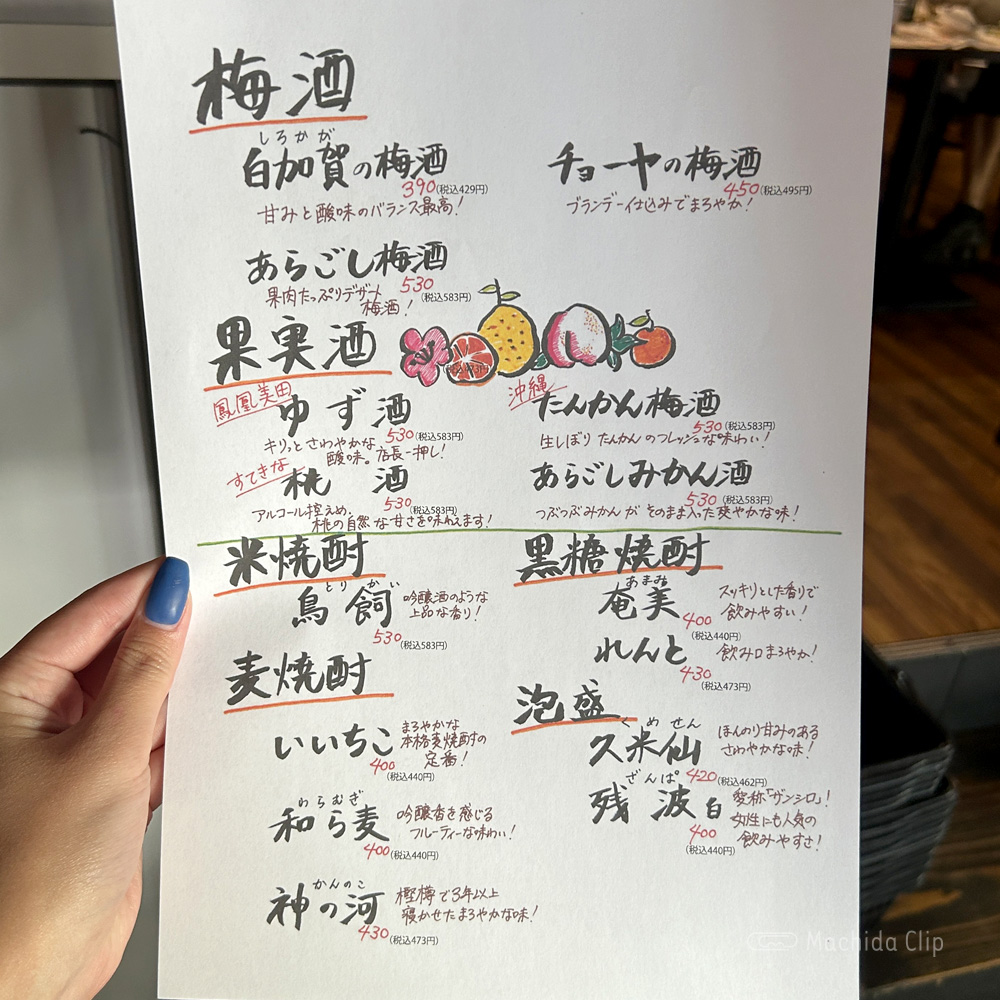 梅酒
しろかが
白加賀の梅酒
390(税込429円)
甘みと酸味のバランス最高!
チョーヤの梅酒
450(税込495円)
ブランデー仕込みでまろやか!
あらごし梅酒
530(税込583円)
果肉たっぷりデザート
梅酒!
果実酒
鳳凰美田
ゆず酒
530(税込583円)
キリっとさわやかな
酸味。店長一押し!
沖縄
たんかん梅酒
530(税込583円)
生しぼりたんかんのフレッシュな味わい!
すてきな
桃酒
530(税込583円)
アルコール控えめ、
桃の自然な甘さを味わえます!
あらごしみかん酒
530(税込583円)
つぶつぶみかんがそのまま入った爽やかな味!
米焼酎
とりかい
鳥飼
530(税込583円)
吟醸酒のような
上品な香り!
黒糖焼酎
あまみ
奄美
400(税込440円)
スッキリとした香りで
飲みやすい!
れんと
430(税込473円)
飲み口まろやか!
麦焼酎
いいちこ
400(税込440円)
まろやかな
本格麦焼酎の
定番!
わらむぎ
和ら麦
400(税込440円)
吟醸香を感じる
フルーティーな味わい!
かんのこ
神の河
430(税込473円)
樫樽で3年以上
寝かせたまろやかな味!
泡盛
くめせん
久米仙
420(税込462円)
ほんのり甘みのある
さわやかな味!
ざんぱ
残波白
400(税込440円)
愛称「ザンシロ」!
女性にも人気の
飲みやすさ!
Machida Clip